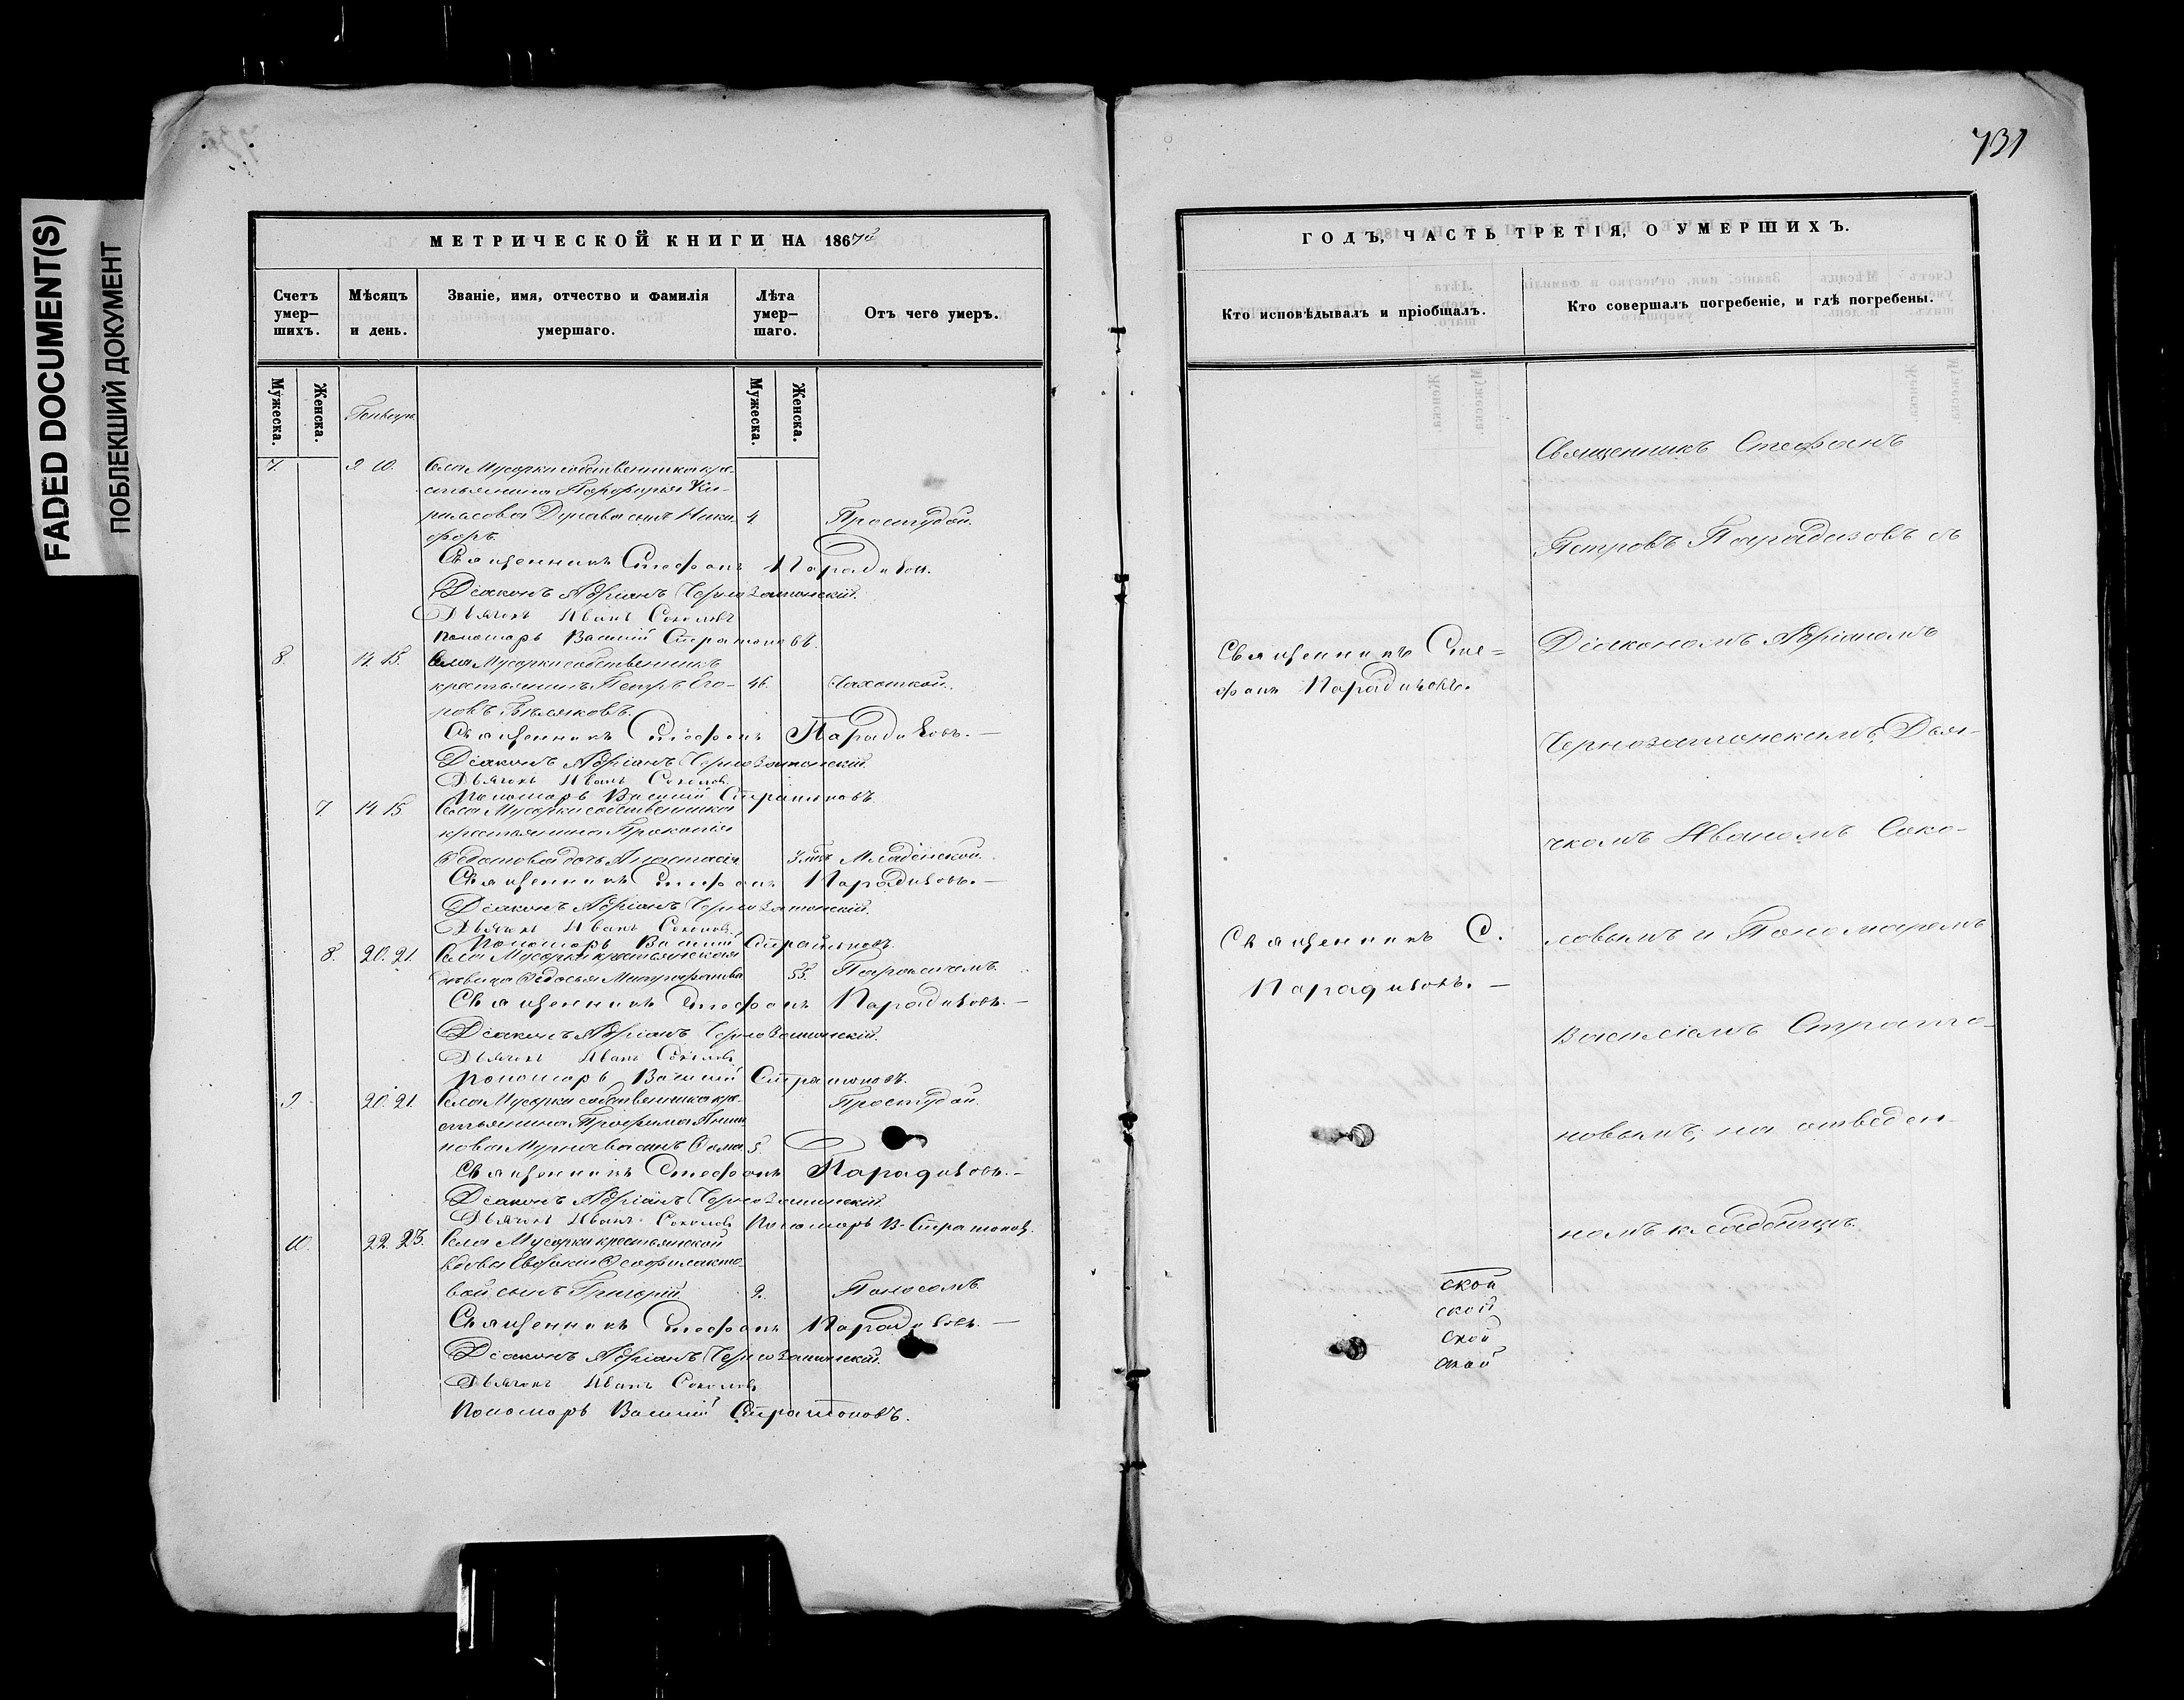 FADED DOCUMENT(S)
ПОБЛЕКШИЙ ДОКУМЕНТ
МЕТРИЧЕСКОЙ КНИГИ НА 1867й
Счетъ умер-шихъ.
Мѣсяцъ и день.
Званіе, имя, отчество и фамилія умершаго.
Лѣта умер-шаго.
Отъ чего умеръ.
Мужеска.
Женска.
Мужеска.
Женска.
Генварь
7. 9 10. Села Мусорки собственника кре-
стьянина Порфирія Ки-
рилова Дунава сынъ Ники- 4. Простудой.
форъ.
Священникъ Стефанъ Парадизовъ.
Діаконъ Адріанъ Чернозатонскій.
Дьячекъ Иванъ Соколовъ
Пономарь Василий Стратоновъ.
8. 14 15. Села Мусорки собственникъ
крестьянинъ Петръ Его- 46. Чахоткой.
ровъ Бѣляковъ.
Священникъ Стефанъ Парадизовъ.—
Діаконъ Адріанъ Чернозатонскій.
Дьячекъ Иванъ Соколовъ.
Пономарь Василий Стратоновъ
7. 14 15. Села Мусорки собственника
крестьянина Прокопія
дочь Анастасія Младенской.
Священникъ Стефанъ Парадизовъ.—
Діаконъ Адріанъ Чернозатонскій.
Дьячекъ Иванъ Соколовъ.
Пономарь Василий Стратоновъ.
8. 20. 21. Села Мусорки крестьянская
дѣвица Ѳедосья Митрофанова 55. Параличемъ.
Священникъ Стефанъ Парадизовъ.—
Діаконъ Адріанъ Чернозатонскій.
Дьячекъ Иванъ Соколовъ
Пономарь Василий Стратоновъ.
9. 20. 21. Села Мусорки собственника кре- Простудой.
стьянина Трофима
сынъ 5
Священникъ Стефанъ Парадизовъ.—
Діаконъ Адріанъ Чернозатонскій.
Дьячекъ Иванъ Соколовъ Пономарь В. Стратоновъ.
10. 22. 23. Села Мусорки крестьянской
вдовы Евдокіи Ѳеофилакто-
вой сынъ Григорій. 2. Поносомъ.
Священникъ Стефанъ Парадизовъ.—
Діаконъ Адріанъ Чернозатонскій.
Дьячекъ Иванъ Соколовъ
Пономарь Василий Стратоновъ.
731
ГОДЪ, ЧАСТЬ ТРЕТІЯ, О УМЕРШИХЪ.
Кто исповѣдывалъ и пріобщалъ.
Кто совершалъ погребеніе, и гдѣ погребены.
Священникъ Сте=
фанъ Парадизовъ.
Священникъ С.
Парадизовъ.—
Священникъ Стефанъ
Петровъ Парадизовъ съ
Діакономъ Адріаномъ
Чернозатонскимъ, Дья-
чкомъ Иваномъ Соко-
ловымъ и Пономаремъ
Василіемъ Страто-
новымъ, на отведен-
номъ кладбищѣ.
ской
ской
ской
ской